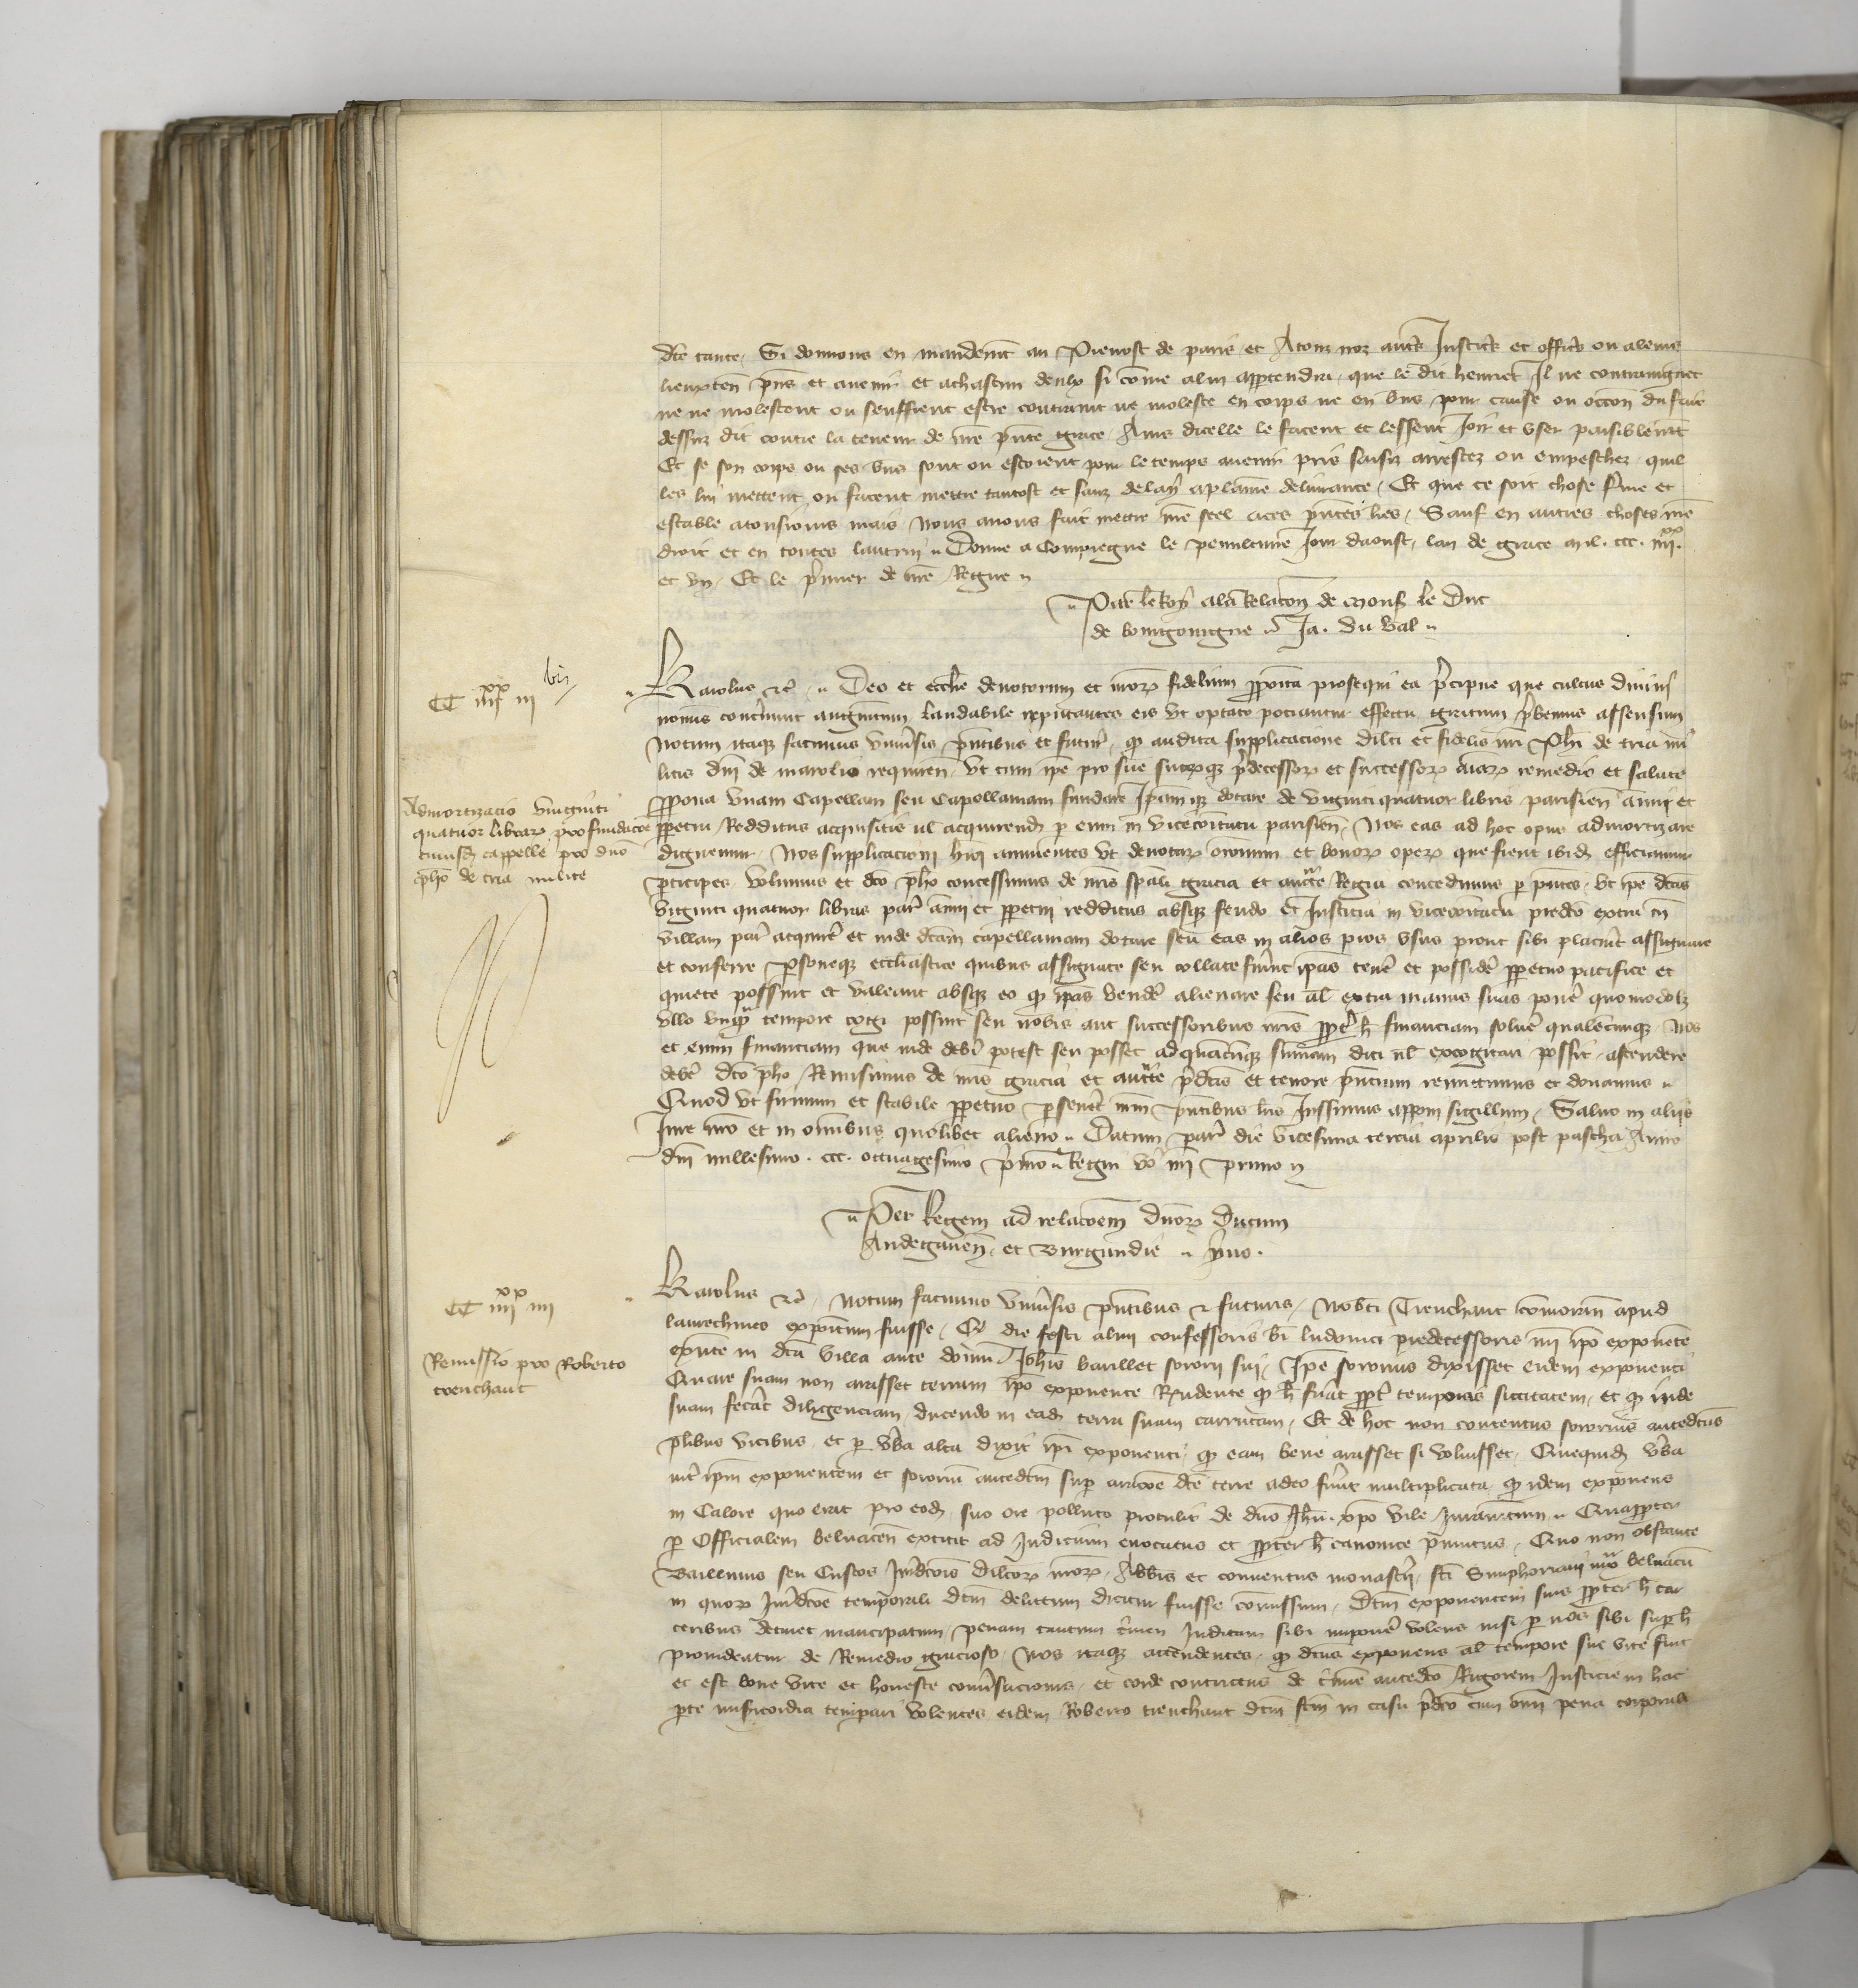 dce cause. Si donnons en mandemt au Prevost de paris et Atouz noz autrs Justicrs et officrs ou aleurs
lieuxten pns et avenir et achascun deulx si come alui appartendra, que le dit henriet Il ne contraingnet
ne ne molestent ou seuffrent estre contraint ne moleste en corps ne en biens pour cause ou occon du fait
dessuz dit contre la teneur de nre pnte grace Ains dicelle le facent et lessent Joir et user paisiblemt
Et se son corps ou ses bns sont ou estoient pour le temps avenir pris saisiz arrestez ou empeschez, quil
les lui mettent ou facent mettre tantost et sanz delay aplaine delivrance, Et que ce soit chose ferme et
estable atousjours mais, Nous avons fait mettre nre seel aces pntes lres, Sauf en autres choses nre
droit et en toutes lautrui, Donne a Compiegne le jour daoust, lan de grace mil. ccc. iiiixx.
et un, Et le premier de nre Regne
Par le Roy ala Relacon de mons le Duc
de bourgoingne Ja. du val
CC iiiixx iii bis
Karolus etc, Deo et ecclie devotorum et nror fidelium pposita prosequi ea precipue que cultus divini
nominis continuum augmentum laudabile reputantes eis ut optato potiantur effectu gratum prebemus assensum
Notum itaque facimus universis pntibus et futuris, quod audita supplicacione dilcti et fidelis nri Phi de tria mi
litis dni de marolio requiren, ut cum ipe pro sue suorque predecessor et successor aiar remedio et salute
pponat unam Capellam seu Capellaniam fundare Ipamque dotare de viginti quatuor libris parisien annui et
Admortizacio viuginti
quatuor librar pro fundacoe
cuiusd cappelle pro dno
pho de tria milite
ppetui Redditus acquisitis vel acquirend per eum in vicecomitatu parisien, Nos eas ad hoc opus admortizare
dignemur, Nos supplicacioni huic annuentes ut devotar oronum et bonor oper que fient ibid efficiamur
pticipes volumus et dco pho concessimus de nris spali gracia et aucte Regia concedimus per pntes, ut ipe dctas
viginti quatuor libras par annui et ppetui redditus absque feudo et Justicia in vicecomitatu predco extra
villam par acquirere et inde dcam capellaniam dotare seu eas in alios pios usus prout sibi placuerit assignare
et conferre psoneque ecclastice quibus assignate seu collate fuerint ipas tenere et possidere ppetuo pacifice et
quiete possint et valeant absque eo quod ipas vendere alienare seu al extra manus suas ponere quomodolz
ullo unquam tempore cogi possint seu nobis aut successoribus nris ppter hoc financiam solvere qualemcunque Nos
et enim financiam que inde deberi potest seu posset ad quamcunque sumam dici vel excogitari possit ascendere
debere dco pho Remisimus de nris gracia et aucte predcis et tenore pntium remittimus et donamus
Quod ut firmum et stabile ppetuo perseveret nrm pntibus lris Jussimus apponi sigillum, Salvo in aliis
Jure nro et in omibus quolibet alieno, Datum par die vicesima tercia aprilis post pascha Anno
dni millesimo. ccc. octuagesimo primo Regni vero nri primo
Per Regem ad relacoem dnor Ducum
Andegaven, et Burgundie yvo.
CC iiiixx iiii
Karolus etc, Notum facimus universis pntibus et futuris, Robti Trenchant comoran apud
lavrechines expositum fuisse, Qd die festi almi confessoris bi ludovici predecessoris nri ipo exponente
Remissio pro Roberto
trenchant
exnte in dca villa ante domum Johis barillet sororii sui, Ipe sororius dixisset eidem exponenti
Quare suam non arasset terram ipo exponente Rndente quod hoc fuerat ppter temporis siccitatem, et quod inde
suam fecerat diligenciam ducendo in ead terra suam carrucam, Et de hoc non contentus sororius antedcus
pluribus vicibus et per verba alta dixit ipi exponenti, quod eam bene arasset si voluisset, Quequid verba
inter ipm exponentem et sororium antedcm super aracoe dce terre adeo fuerunt multiplicata quod idem exponens
in Calore quo erat pro eod, suo ore polluto protulit de dno Jhu. xpo vile Juramentum, Quappter
per Officialem belvacen extitit ad Judicium evocatus et ppter hoc canonice punitus, Quo non obstante
Baillivus seu Custos Jurdcois dilctor nror, Abbis et conventus monastrii, sci Simphoriani juxta belvacum
in quor Jurdcoe temporali dcm delictum dicitur fuisse comissum, dcm exponentem suis ppter hoc car
ceribus detinet mancipatum, penam tantum crimen Indictam sibi imponere volens nisi per nos sibi super hoc
provideatur de Remedio gracioso Nos itaque attendentes, quod dcus exponens al tempore sue vite fuit
et est bone vite et honeste conversacionis, et corde contrictus de crimine antedco Rigorem Justicie in hac
parte misericordia temperari volentes eidem Roberto trenchant dcm fcm in casu predco cum omi pena corporali